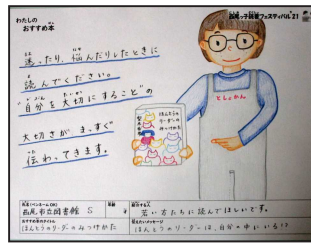 わたしの
おすすめ本
西尾っ子読書フェスティバル'21
迷ったり、悩んだりしたときに
読んでください。
"自分を大切にすること"の
大切さが、まっすぐ
伝わってきます。
としょかん
ほんとうの
リーダーの
みつけかた
氏名(ペンネームOK)
西尾市立図書館 S
年齢
紹介する人
若い方たちに読んでほしいです。
おすすめ本のタイトル
ほんとうのリーダーのみつけかた
伝えたいメッセージ
ほんとうのリーダーは、自分の中にいる!?